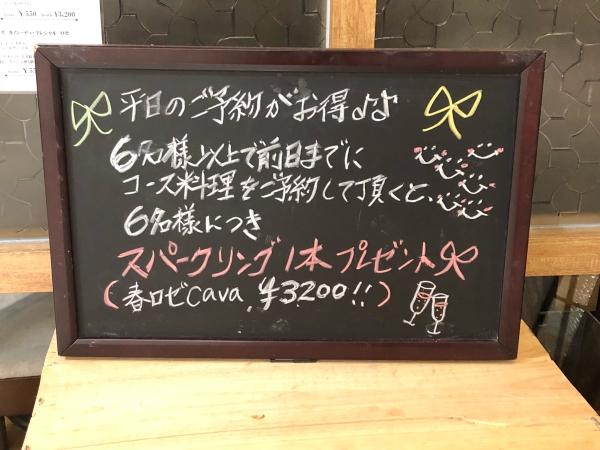 ¥550 ¥3,200
平日のご予約がお得♪♪
6名様以上で前日までに
コース料理をご予約して頂くと、
6名様につき
スパークリング1本プレゼント
(春ロゼCava ¥3200!!)